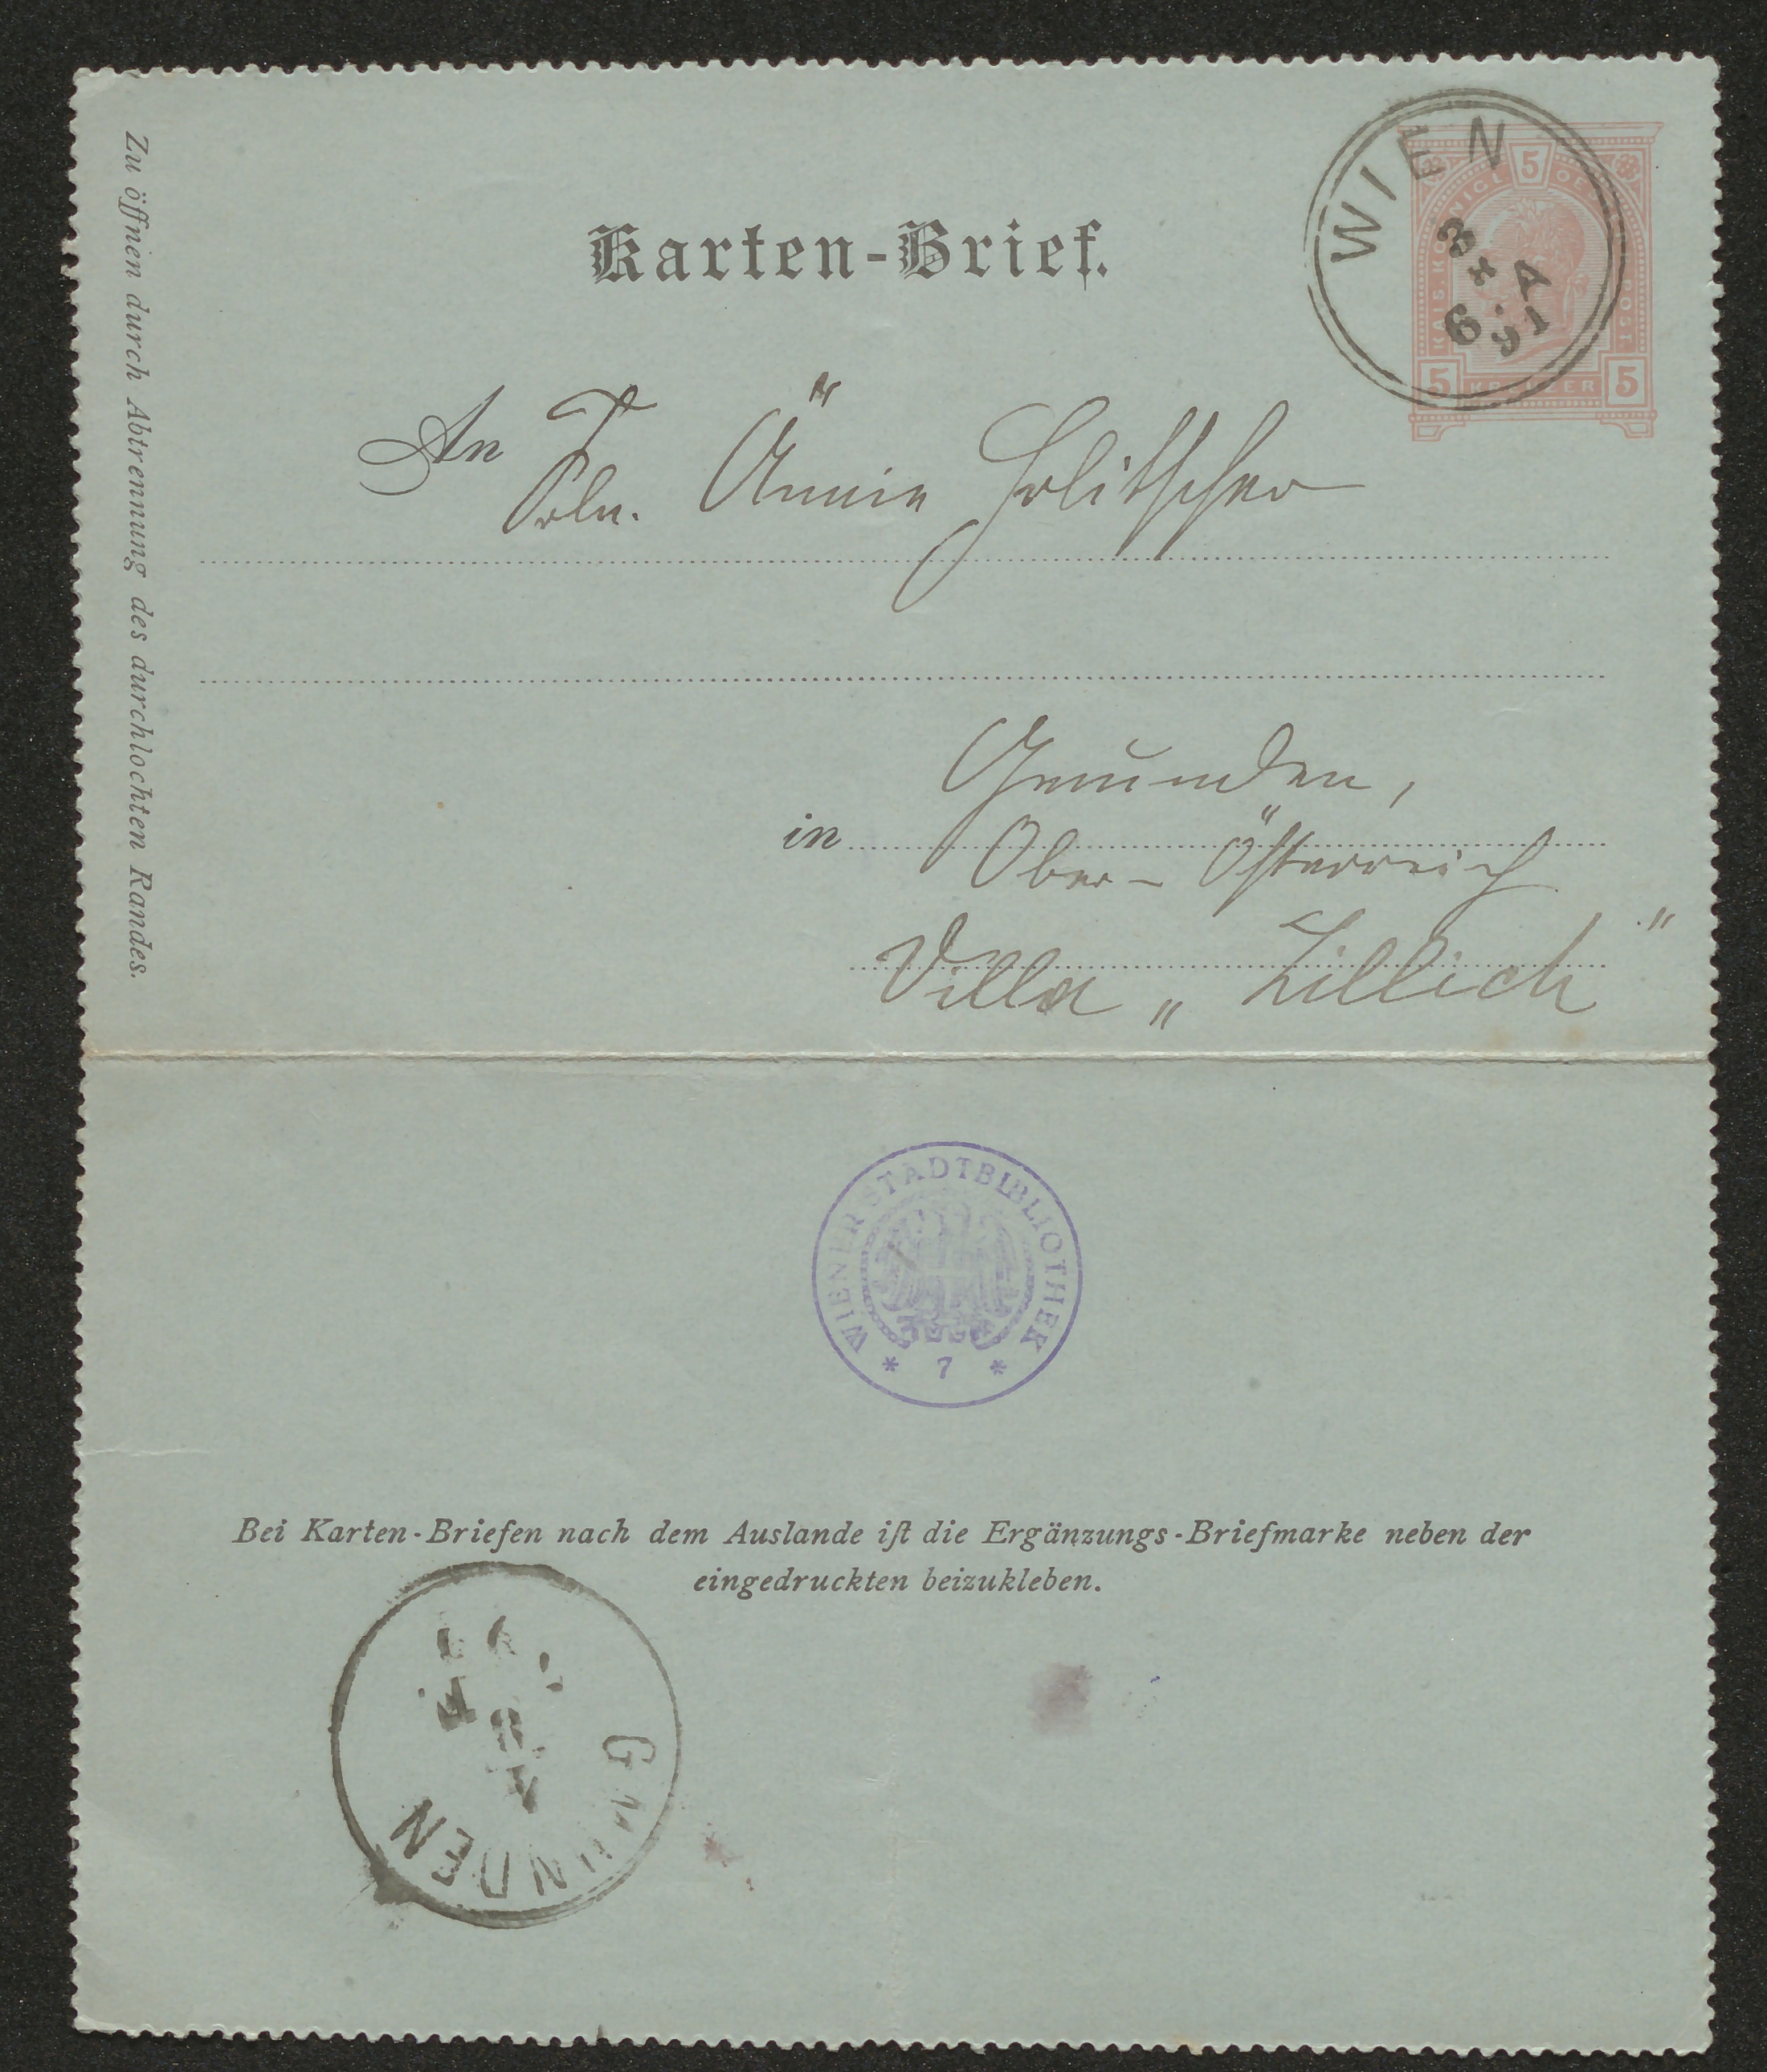 Karten-Brief.
WIEN
3
6 4
91
5
KAIS. KÖNIGL. OE POST
5 KREUZER 5
An Frln. Ännie Holitscher
Gmunden,
in
Ober-Österreich
Villa „Lillich"
Zu öffnen durch Abtrennung des durchlochten Randes.
WIENER STADTBIBLIOTHEK
* 7 *
Bei Karten-Briefen nach dem Auslande iſt die Ergänzungs-Briefmarke neben der
eingedruckten beizukleben.
GMUNDEN